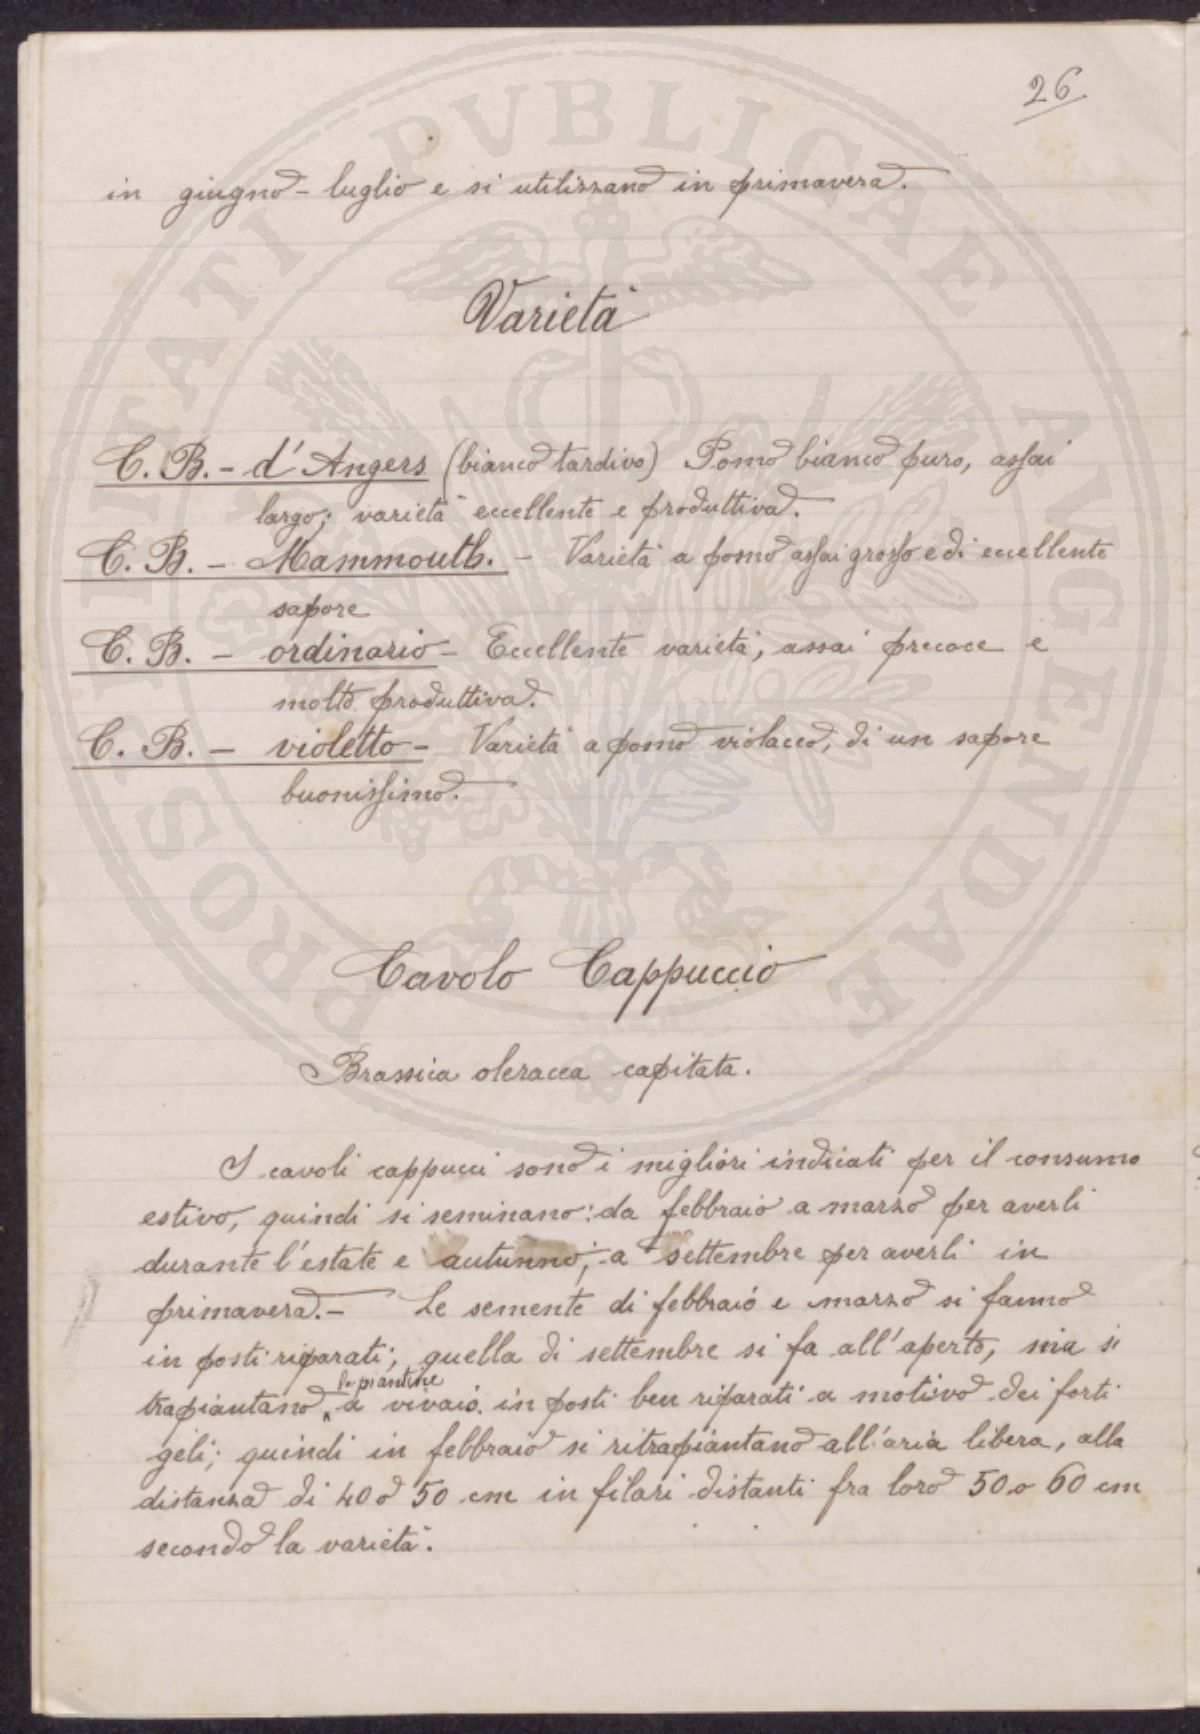 26
in giugno - luglio e si utilizzano in primavera.
Varietà
C. B. - d'Angers (bianco tardivo) Pomo bianco puro, assai
largo; varietà eccellente e produttiva.
C. B. - Mammouth. - Varietà a pomo assai grosso e di eccellente
sapore
C. B. - ordinario - Eccellente varietà, assai precoce e
molto produttiva.
C. B. - violetto - Varietà a pomo violaceo, di un sapore
buonissimo.
Cavolo Cappuccio
Brassica oleracea capitata.
I cavoli cappucci sono i migliori indicati per il consumo
estivo, quindi si seminano: da febbraio a marzo per averli
durante l'estate e autunno; a settembre per averli in
primavera. - Le semente di febbraio e marzo si fanno
in posti riparati; quella di settembre si fa all'aperto, ma si
le piantine
trapiantano a vivaio in posti ben riparati a motivo dei forti
geli; quindi in febbraio si ritrapiantano all'aria libera, alla
distanza di 40 o 50 cm in filari distanti fra loro 50 o 60 cm
secondo la varietà.
PROSPERITATI PVBLICAE AVGENDAE